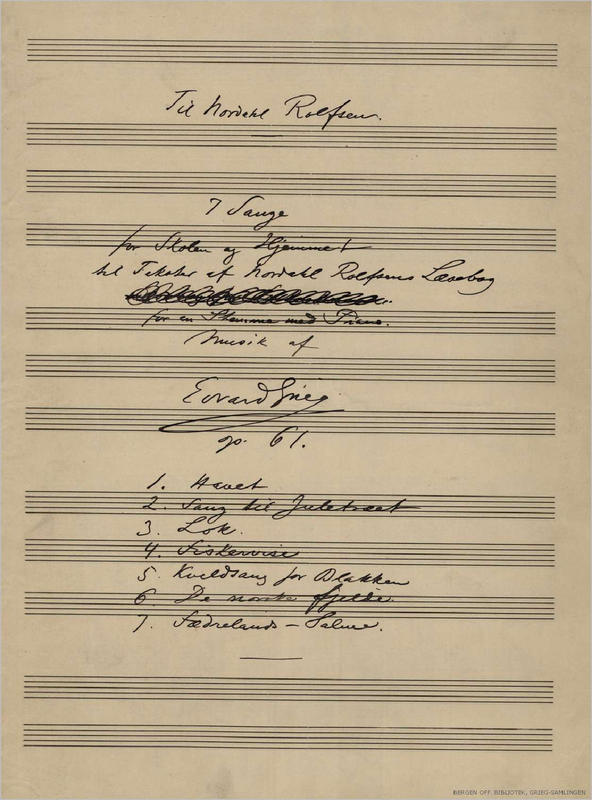 Til Nordahl Rolfsen.
7 Sange
for Skolen og Hjemmet
til Tekster af Nordahl Rolfsens Læsebog
for en Stemme med Piano.
Musik af
Edvard Grieg
op. 61.
1. Havet
2. Sang til Juletræet
3. Lok.
4. Fiskervise
5. Kveldsang for Blakken
6. De norske fjelde.
7. Fædrelands-Salme.
BERGEN OFF. BIBLIOTEK, GRIEG-SAMLINGEN